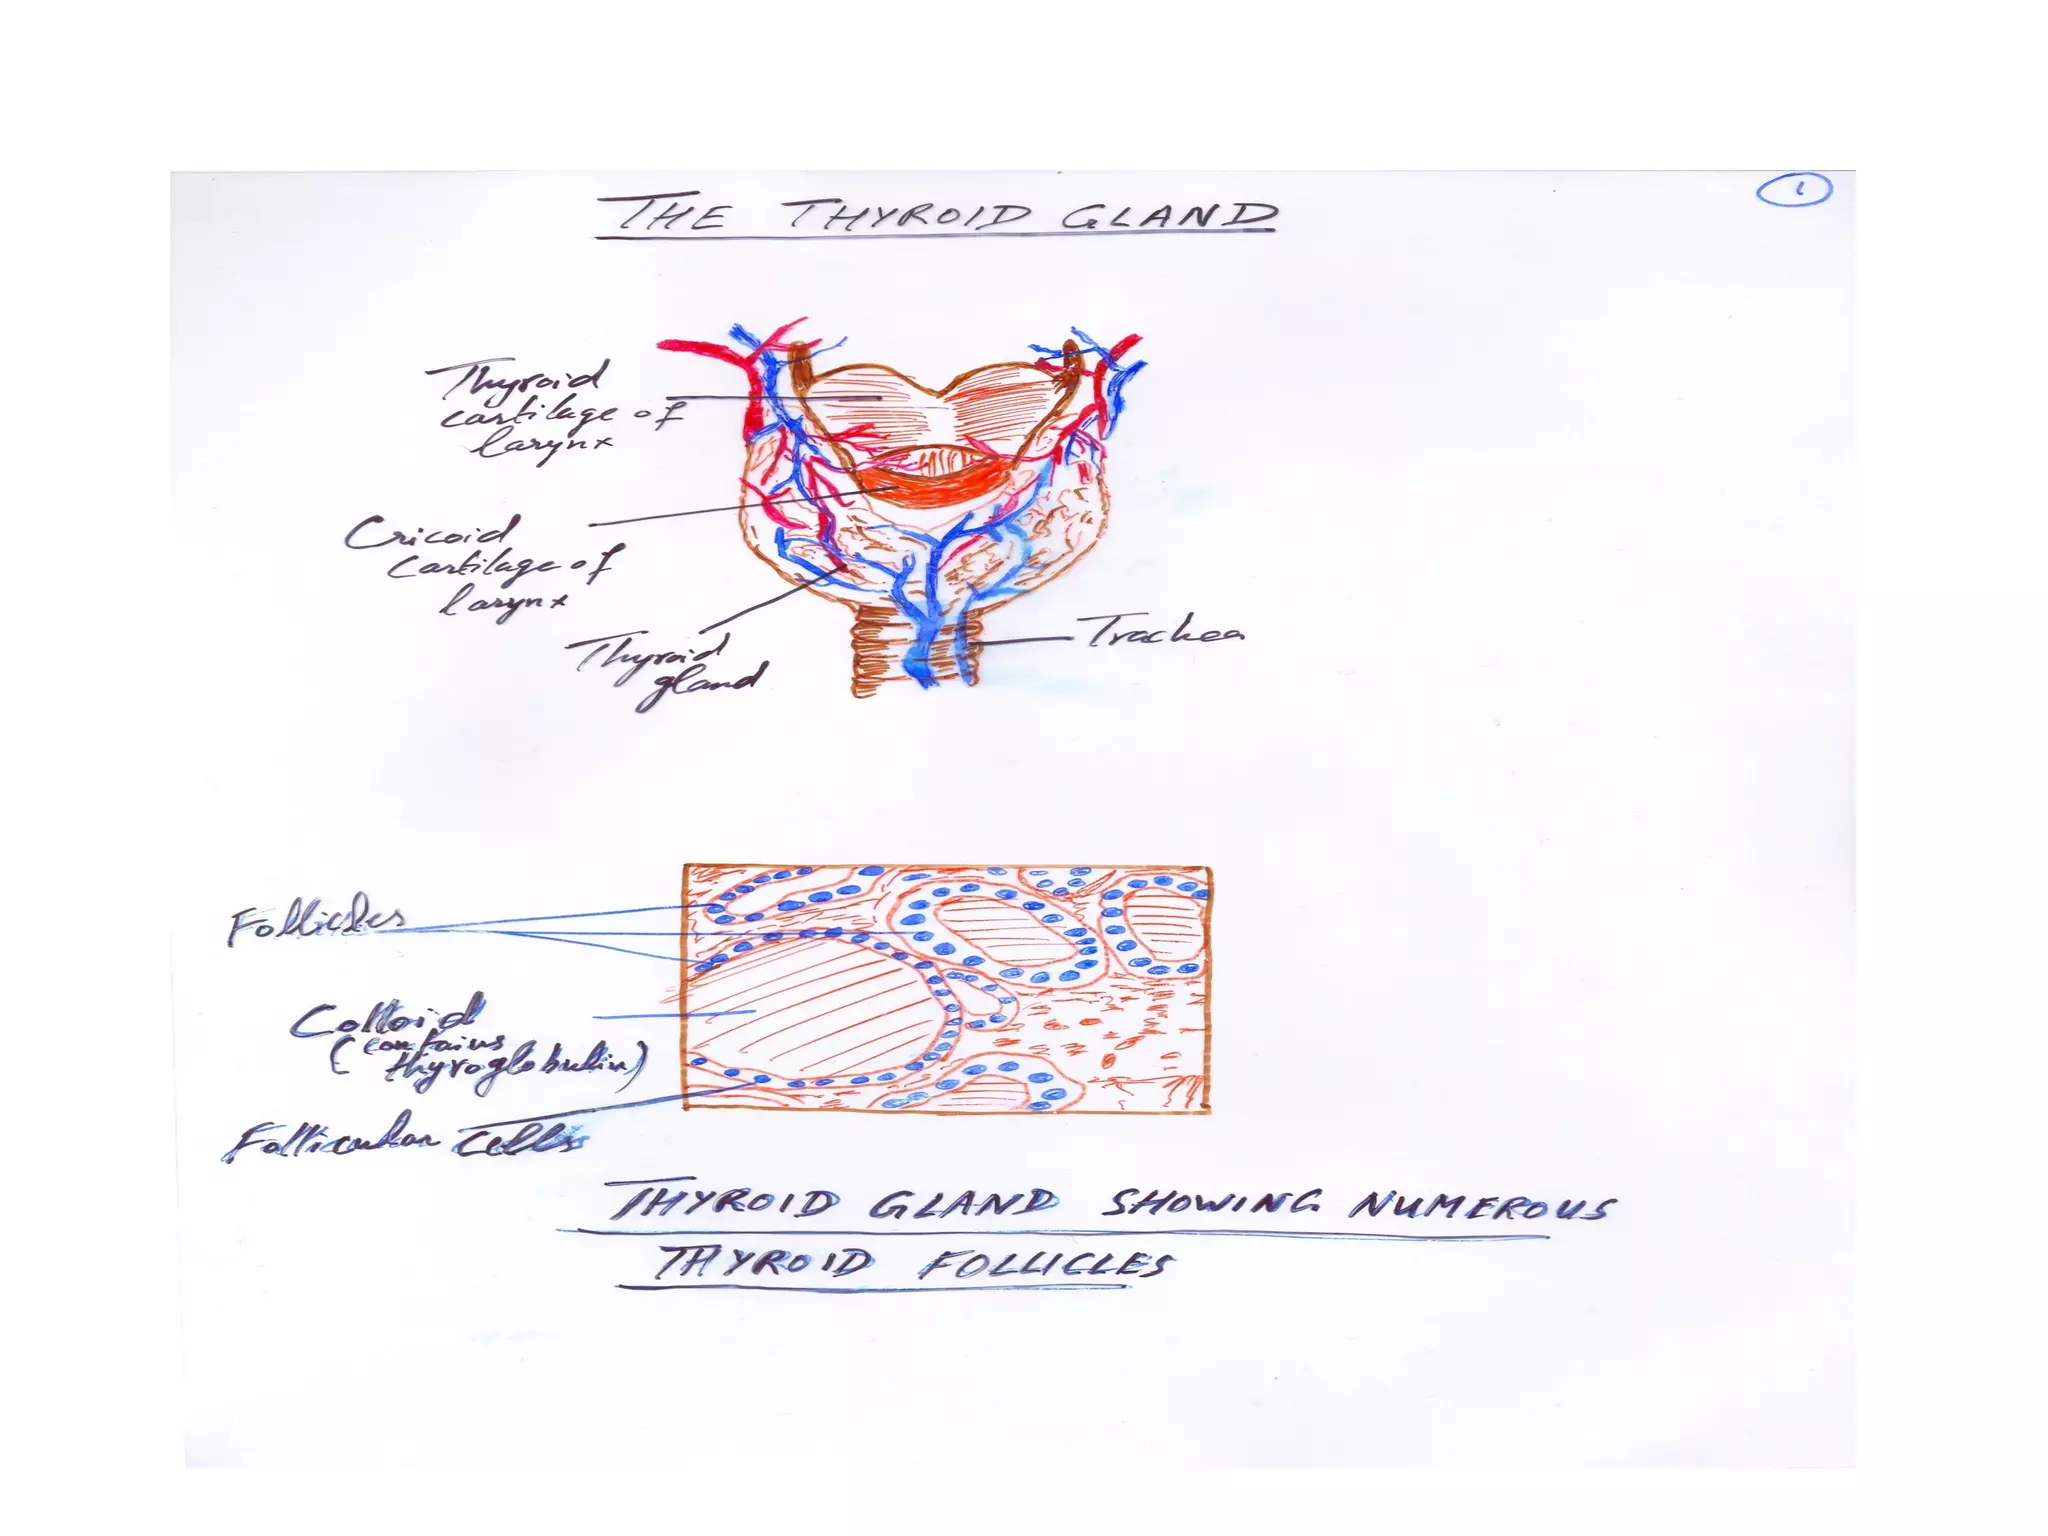 THE THYROID GLAND
1
Thyroid
cartilage of
larynx
Cricoid
cartilage of
larynx
Thyroid
gland
Trachea
Follicles
Colloid
(contains
thyroglobulin)
Follicular cells
THYROID GLAND SHOWING NUMEROUS
THYROID FOLLICLES